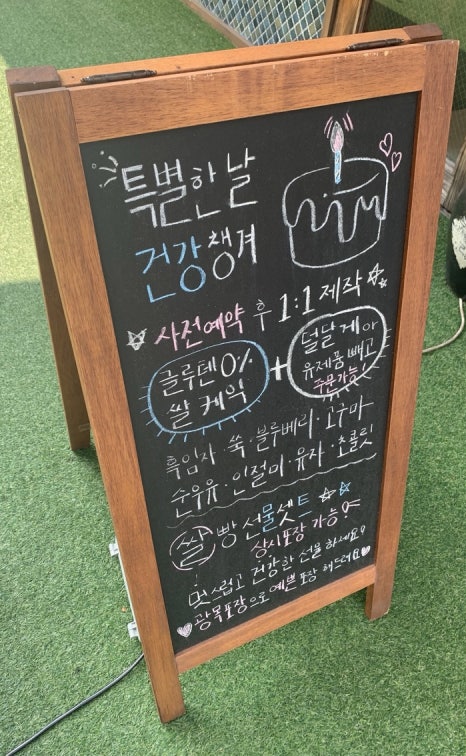 특별한 날
건강 챙겨
사전예약 후 1:1 제작
글루텐 0%
쌀 케익
+
덜달게 아
유제품 빼고
주문가능!
흑임자·쑥·블루베리·고구마
순우유·인절미·유자·초콜릿
쌀빵 선물셋트
상시포장 가능!
멋스럽고 건강한 선물 하세요!
광목포장으로 예쁜 포장 해드려요